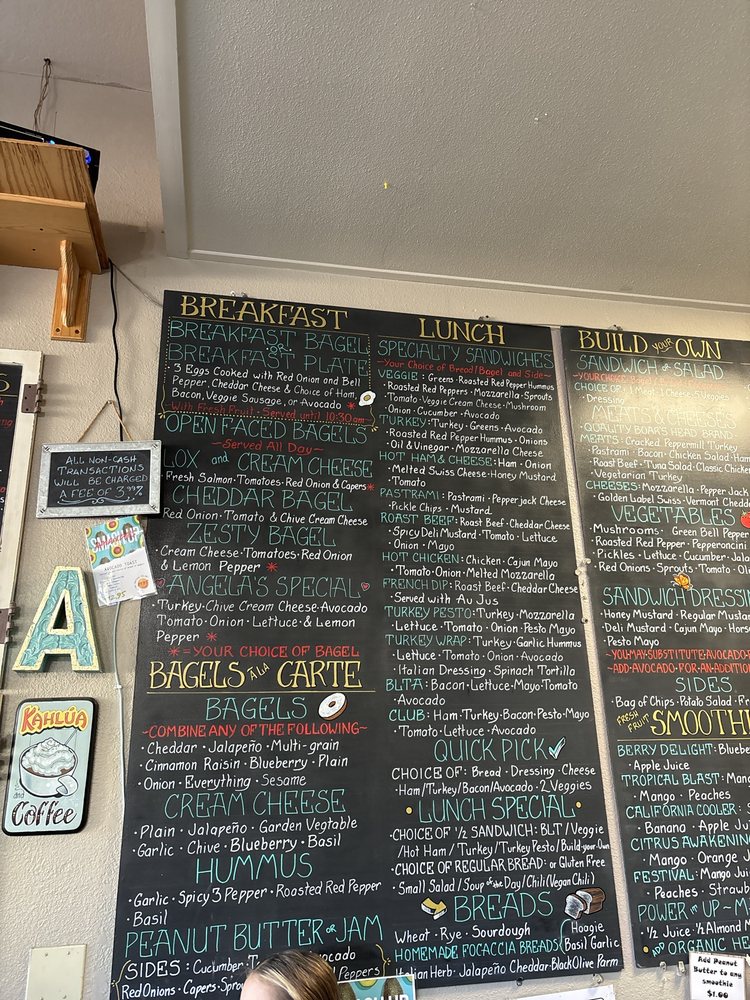 BREAKFAST
BREAKFAST BAGEL
or
BREAKFAST PLATE
• 3 Eggs Cooked with Red Onion and Bell
Pepper, Cheddar Cheese & Choice of Ham,
Bacon, Veggie Sausage, or Avocado *
With Fresh Fruit • Served until 10:30 am
OPEN FACED BAGELS
~Served All Day~
LOX and CREAM CHEESE
Fresh Salmon•Tomatoes•Red Onion & Capers*
CHEDDAR BAGEL
Red Onion•Tomato & Chive Cream Cheese
ZESTY BAGEL
•Cream Cheese•Tomatoes•Red Onion
& Lemon Pepper *
ANGELA'S SPECIAL
•Turkey•Chive Cream Cheese•Avocado
Tomato•Onion•Lettuce & Lemon
Pepper *
* = YOUR CHOICE OF BAGEL
BAGELS A LA CARTE
BAGELS
~COMBINE ANY OF THE FOLLOWING~
• Cheddar • Jalapeño • Multi-grain
• Cinnamon Raisin • Blueberry • Plain
• Onion • Everything • Sesame
CREAM CHEESE
• Plain • Jalapeño • Garden Vegtable
• Garlic • Chive • Blueberry • Basil
HUMMUS
• Garlic • Spicy 3 Pepper • Roasted Red Pepper
• Basil
PEANUT BUTTER or JAM
SIDES: Cucumber
Peppers
Red Onions • Capers
LUNCH
SPECIALTY SANDWICHES
~Your Choice of Bread/Bagel and Side~
VEGGIE: Greens•Roasted Red Pepper Hummus
• Roasted Red Peppers • Mozzarella • Sprouts
Tomato•Veggie Cream Cheese•Mushroom
Onion • Cucumber • Avocado
TURKEY: Turkey • Greens • Avocado
• Roasted Red Pepper Hummus • Onions
• Oil & Vinegar • Mozzarella Cheese
HOT HAM & CHEESE: Ham • Onion
• Melted Swiss Cheese•Honey Mustard
• Tomato
PASTRAMI: Pastrami • Pepper jack Cheese
• Pickle Chips • Mustard
ROAST BEEF: Roast Beef•Cheddar Cheese
•Spicy Deli Mustard • Tomato • Lettuce
• Onion • Mayo
HOT CHICKEN: Chicken • Cajun Mayo
•Tomato•Onion•Melted Mozzarella
FRENCH DIP: Roast Beef•Cheddar Cheese
• Served with Au Jus
TURKEY PESTO: Turkey • Mozzarella
• Lettuce • Tomato • Onion • Pesto Mayo
TURKEY WRAP: Turkey•Garlic Hummus
• Lettuce • Tomato • Onion • Avocado
• Italian Dressing • Spinach Tortilla
BLTA: Bacon • Lettuce•Mayo•Tomato
• Avocado
CLUB: Ham•Turkey•Bacon•Pesto•Mayo
• Tomato•Lettuce•Avocado
QUICK PICK
CHOICE OF: Bread • Dressing • Cheese
• Ham/Turkey/Bacon/Avocado•2 Veggies
• LUNCH SPECIAL •
•CHOICE OF ½ SANDWICH: BLT / Veggie
/Hot Ham / Turkey / Turkey Pesto / Build-your-Own
•CHOICE OF REGULAR BREAD or Gluten Free
• Small Salad / Soup of the Day / Chili (Vegan Chili)
BREADS
Wheat • Rye • Sourdough Hoogie
HOMEMADE FOCACCIA BREADS Basil Garlic
Italian Herb • Jalapeño Cheddar•Black Olive Parm
BUILD your OWN
SANDWICH or SALAD
CHOICE OF: 1 Meat 1 Cheese 5 Veggies
• Dressing
QUALITY BOAR'S HEAD BRAND
MEATS: Cracked Peppermill Turkey
• Pastrami • Bacon • Chicken Salad•Ham
• Roast Beef • Tuna Salad • Classic Chicke
• Vegetarian Turkey
CHEESES: Mozzarella • Pepper Jack
• Golden Label Swiss•Vermont Chedda
VEGETABLES
Mushrooms • Green Bell Pepper
• Roasted Red Pepper • Pepperoncini
• Pickles • Lettuce • Cucumber • Jala
• Red Onions • Sprouts • Tomato • Oli
SANDWICH DRESSIN
• Honey Mustard • Regular Mustar
• Deli Mustard • Cajun Mayo • Horse
• Pesto Mayo
~YOU MAY SUBSTITUTE AVOCADO
~ADD AVOCADO FOR AN ADDITION
SIDES
• Bag of Chips•Potato Salad•Fre
FRESH FRUIT SMOOTHI
BERRY DELIGHT: Blueber
• Apple Juice
TROPICAL BLAST: Man
• Mango • Peaches
CALIFORNIA COOLER:
• Banana • Apple Jui
CITRUS AWAKENING
• Mango • Orange J
FESTIVAL: Mango Juic
• Peaches • Strawb
POWER it UP ~ M
• ½ Juice ½ Almond M
ADD ORGANIC HE
Add Peanut
Butter to any
smoothie
$1.00
ALL NON-CASH
TRANSACTIONS
WILL BE CHARGED
A FEE OF 3.99%
AVOCADO TOAST
A
KAHLÚA
and
Coffee